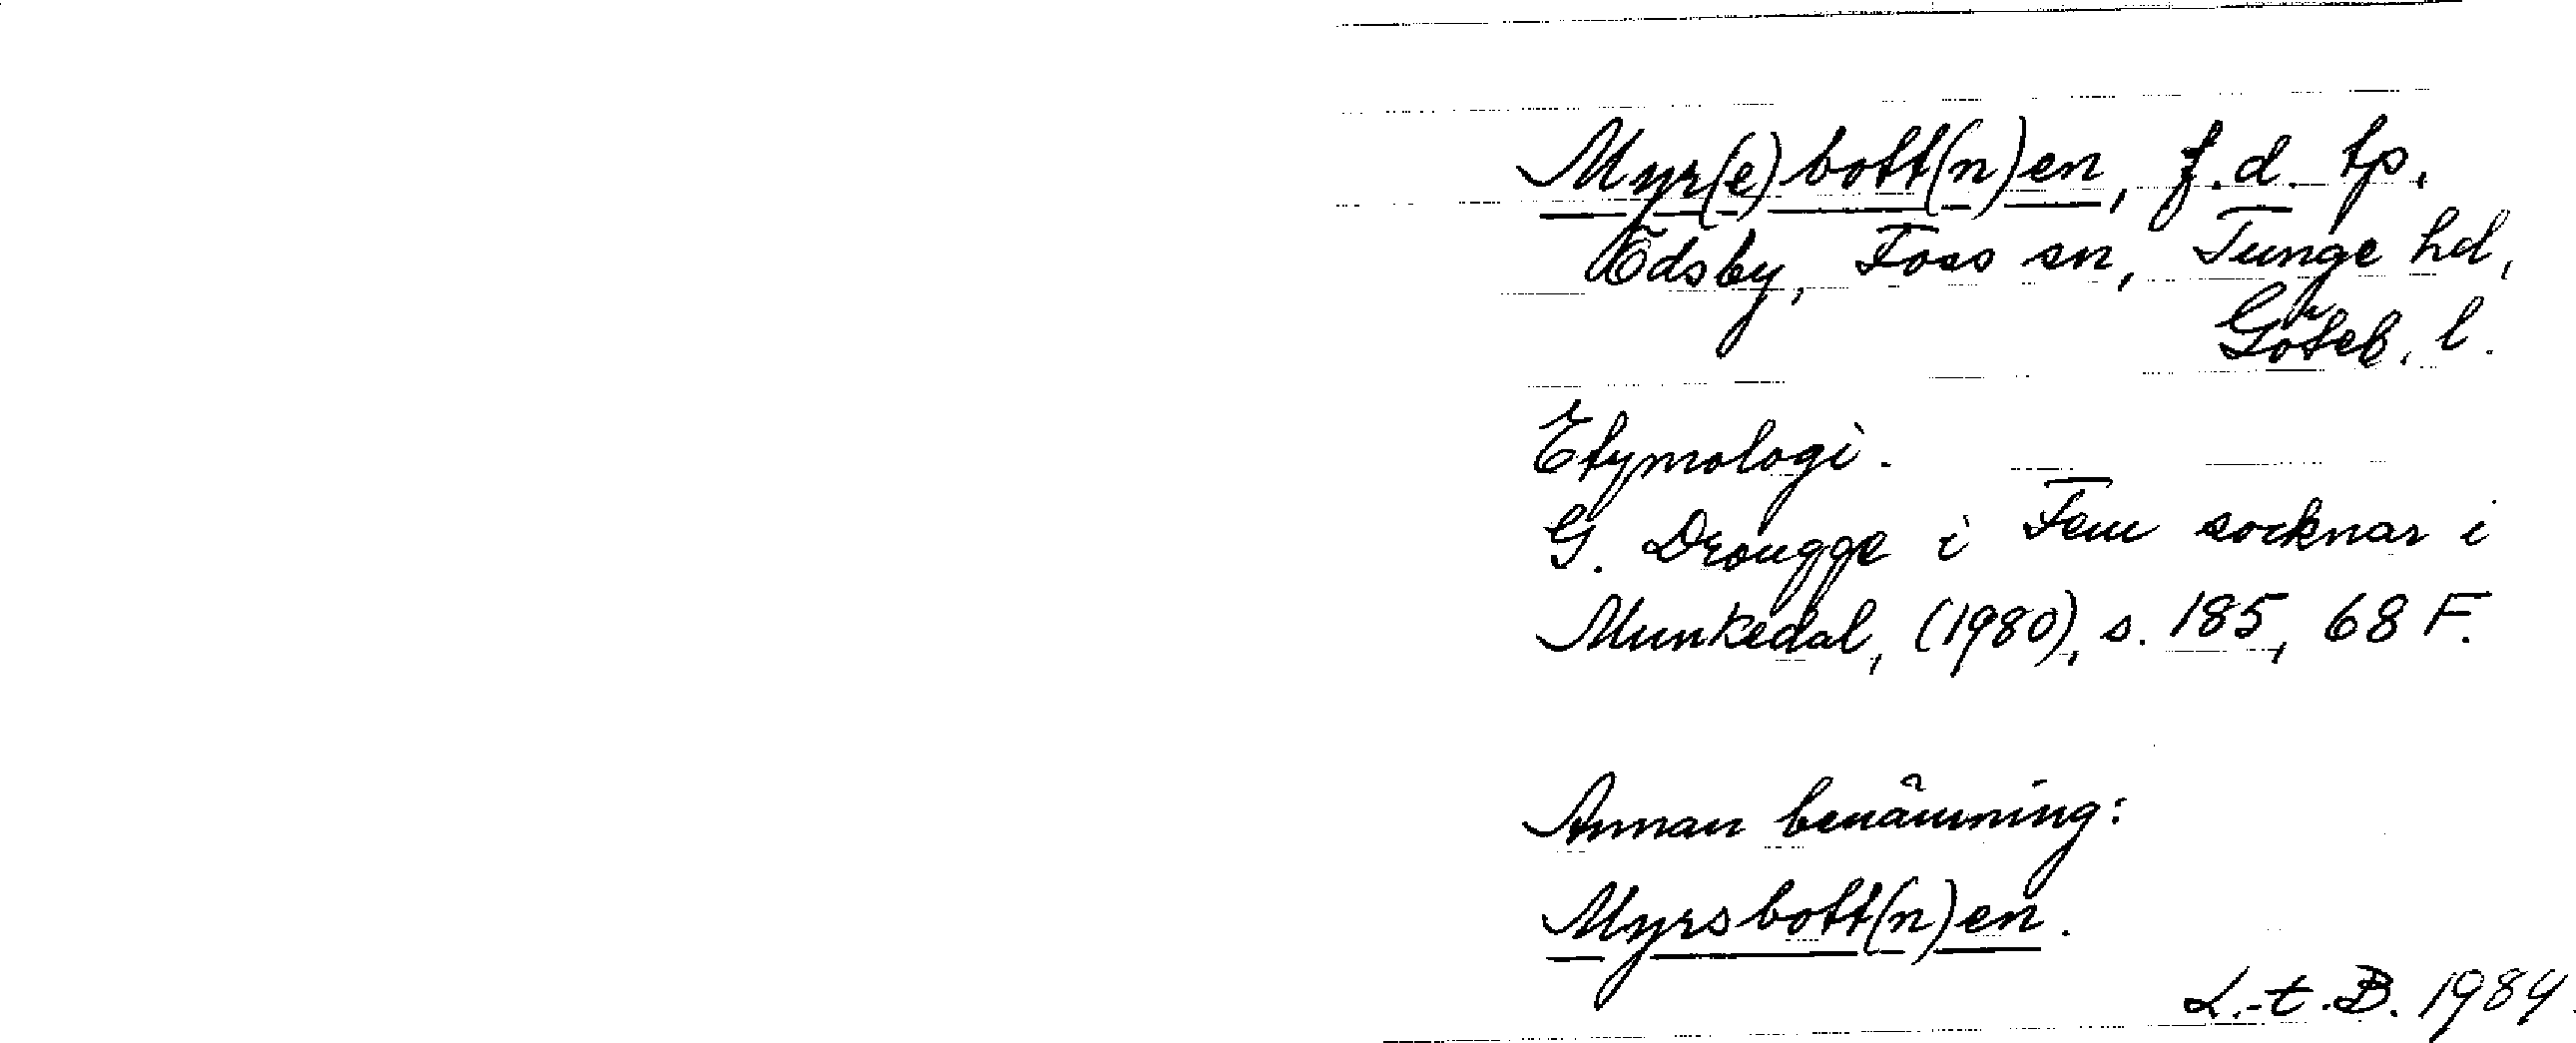 Myr(e)bott(n)en, f.d. tp.
Ödsby, Foss sn, Tunge hd,
Göteb. l.
Etymologi.
G. Drougge i Fem socknar i
Munkedal, (1980), s. 185, 68 F.
Annan benämning:
Myrsbott(n)en.
L.-t. B. 1984